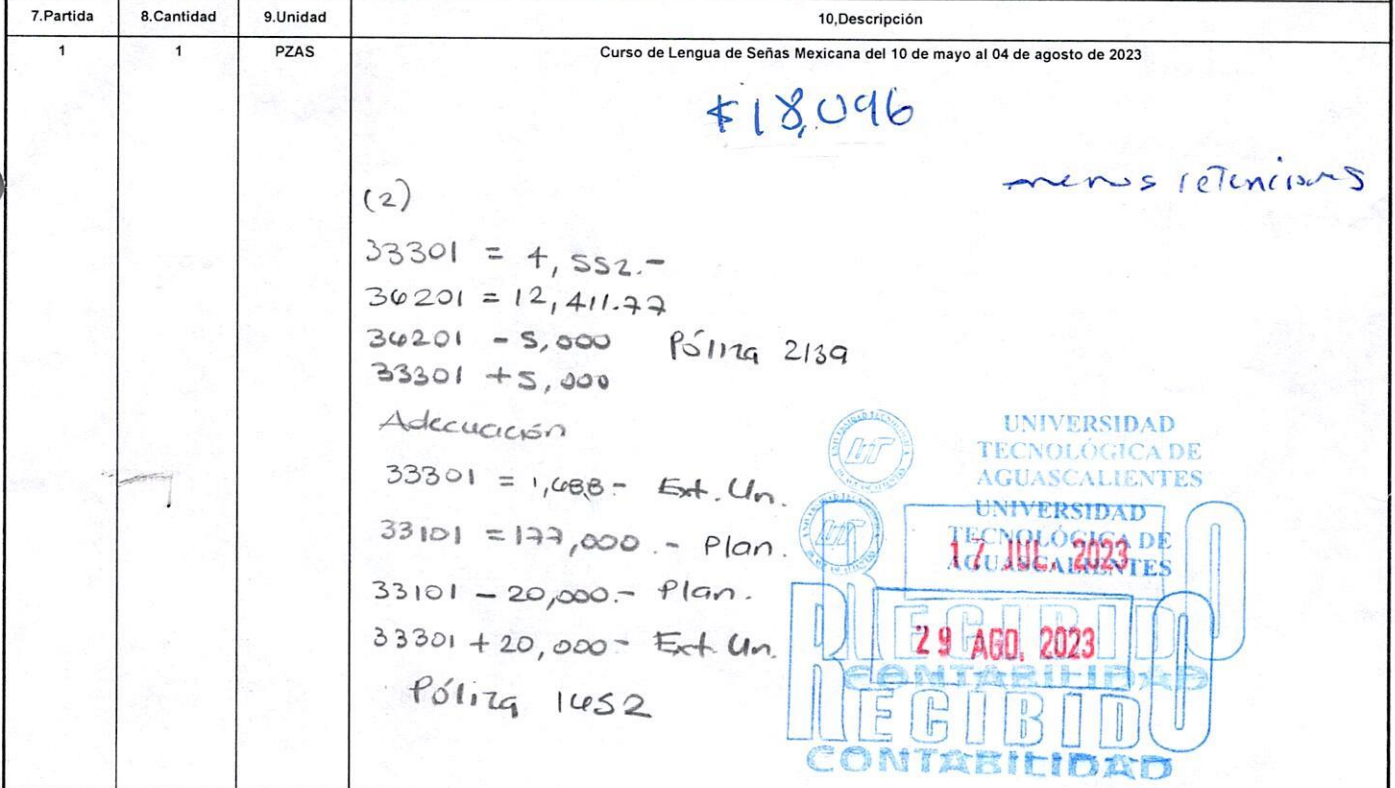 7.Partida 8.Cantidad 9.Unidad 10,Descripción
1 1 PZAS Curso de Lengua de Señas Mexicana del 10 de mayo al 04 de agosto de 2023
$18,096
menos retenciones
(2)
33301 = 4,552.-
36201 = 12,411.77
36201 - 5,000 Póliza 2139
33301 + 5,000
Adecuación
33301 = 1,688.- Ext. Un.
33101 = 177,000.- Plan.
33101 - 20,000.- Plan.
33301 + 20,000.- Ext. Un.
Póliza 1652
UNIVERSIDAD
TECNOLÓGICA DE
AGUASCALIENTES
UNIVERSIDAD
TECNOLÓGICA DE
AGUASCALIENTES
17 JUL. 2023
RECIBIDO
29 AGO. 2023
CONTABILIDAD
RECIBIDO
CONTABILIDAD